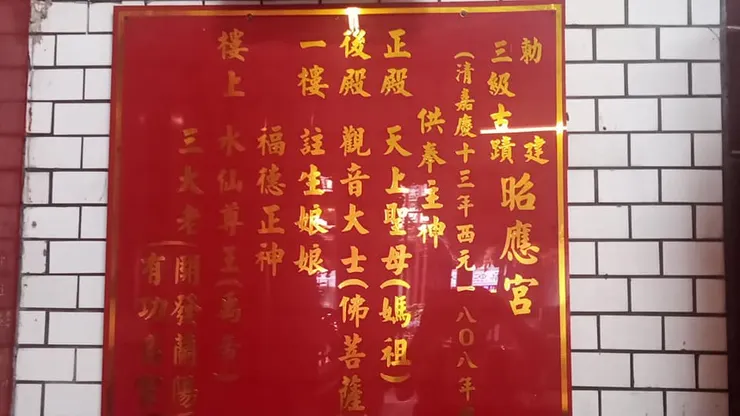 勅建昭應宮
三級古蹟
(清嘉慶十三年西元一八〇八年
供奉主神
正殿 天上聖母(媽祖)
後殿 觀音大士(佛菩薩
一樓 註生娘娘
福德正神
樓上 水仙尊王
三大老(開發蘭陽
有功